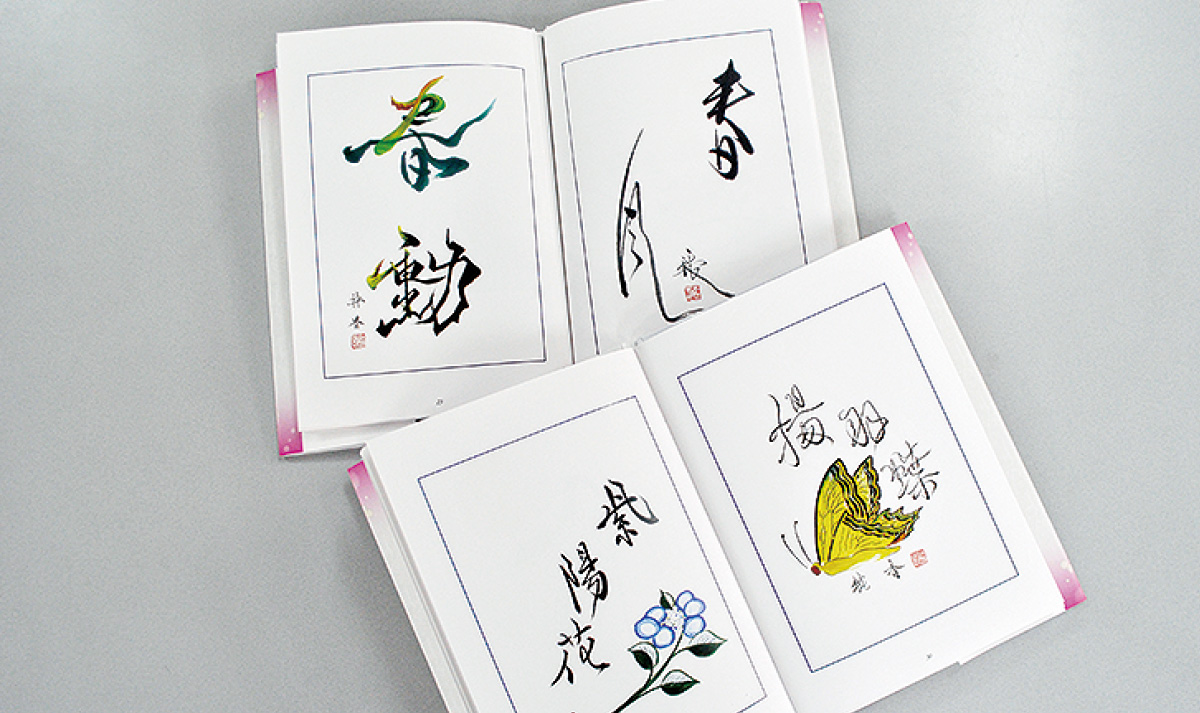 春
動
春
風
紫陽花
揚羽蝶